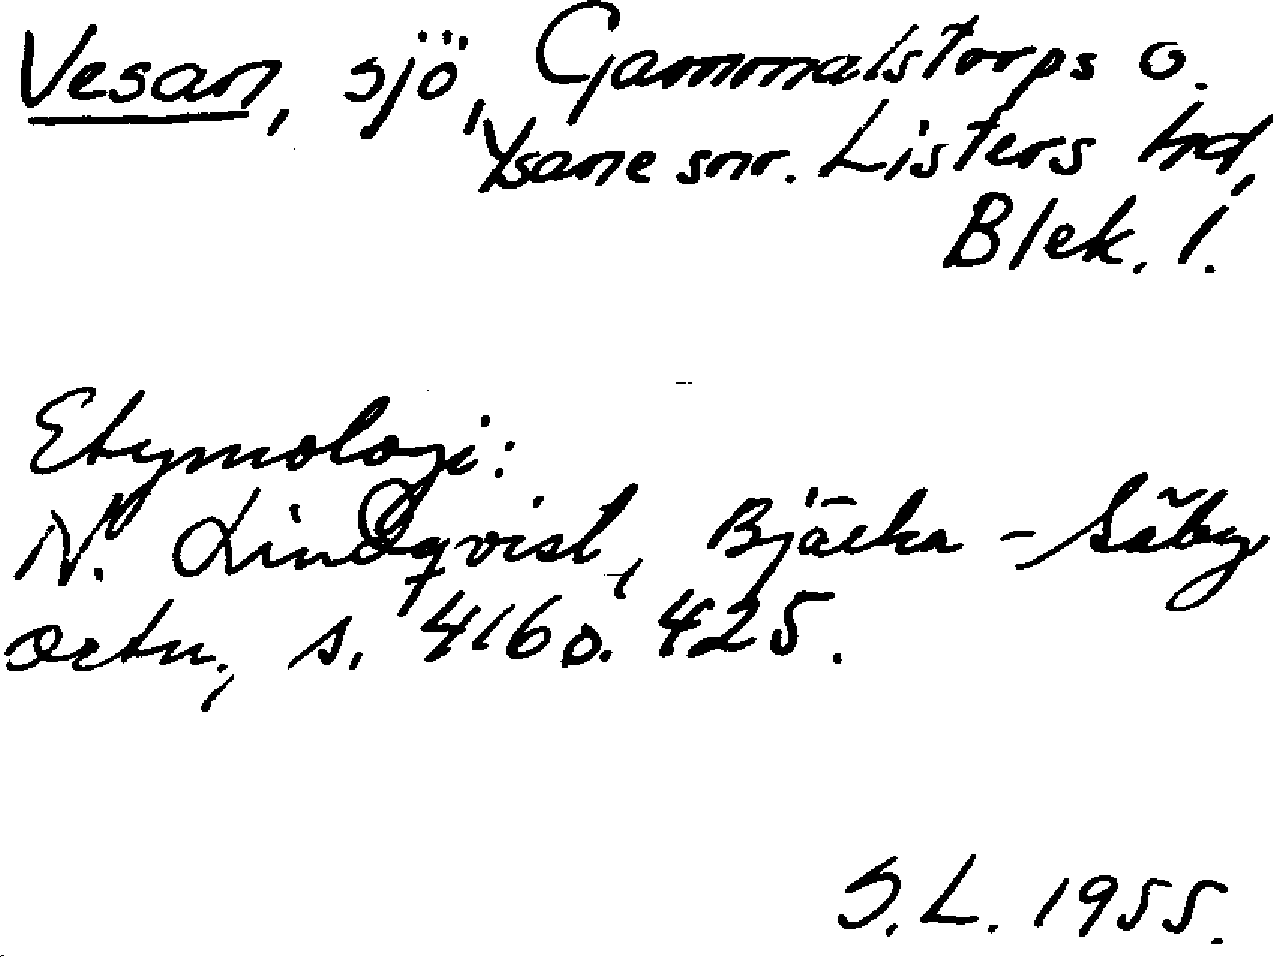 Vesan, sjö, Gammalstorps o.
Ysane snr. Listers hd,
Blek. l.
Etymologi:
N. Lindqvist, Bjärka-Säby
ortn., s. 416 o. 425.
S.L. 1955.